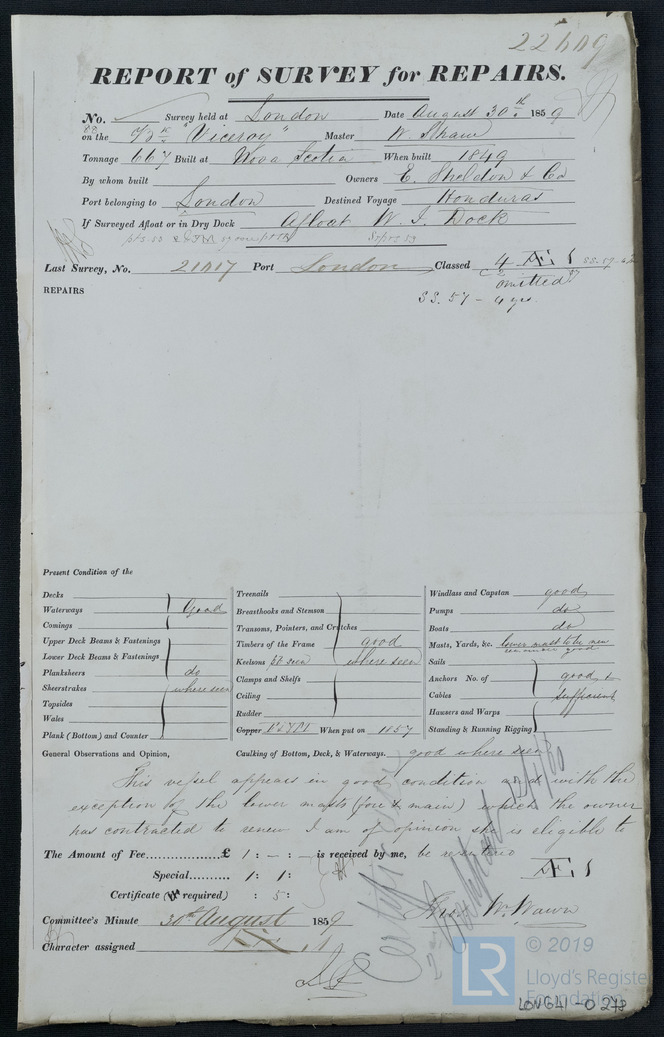 REPORT of SURVEY for REPAIRS.
No. Survey held at London Date August 30th 1859
on the "Viceroy" Master W. Shaw
Tonnage 667 Built at Nova Scotia When built 1849
By whom built Owners E. Sheldon & Co
Port belonging to London Destined Voyage Honduras
If Surveyed Afloat or in Dry Dock Afloat W. I. Dock
Last Survey, No. Port London Classed 4 Æ 1
omitted
REPAIRS
SS. 57 - 4 yrs.
Present Condition of the
Decks
Waterways Good
Comings
Upper Deck Beams & Fastenings
Lower Deck Beams & Fastenings
Planksheers do
Sheerstrakes where seen
Topsides
Wales
Plank (Bottom) and Counter
Treenails
Breasthooks and Stemson
Transoms, Pointers, and Crutches
Timbers of the Frame good
Keelsons pt seen where seen
Clamps and Shelfs
Ceiling
Rudder
Copper When put on 1857
Windlass and Capstan good
Pumps do
Boats do
Masts, Yards, &c. lower mast to be new
good
Sails
Anchors No. of good &
Cables sufficient
Hawsers and Warps
Standing & Running Rigging
General Observations and Opinion, Caulking of Bottom, Deck, & Waterways. good where seen
This vessel appears in good condition and with the
exception of the lower masts (fore & main) which the owner
has contracted to renew I am of opinion she is eligible to
The Amount of Fee............£ 1 : - : - is received by me, be
Æ 1
Special ............ 1 : 1 :
Certificate (if required) : 5 :
Committee's Minute 30th August 1859
Character assigned
© 2019
LR
Lloyd's Registe
Foundation
LON641-0278